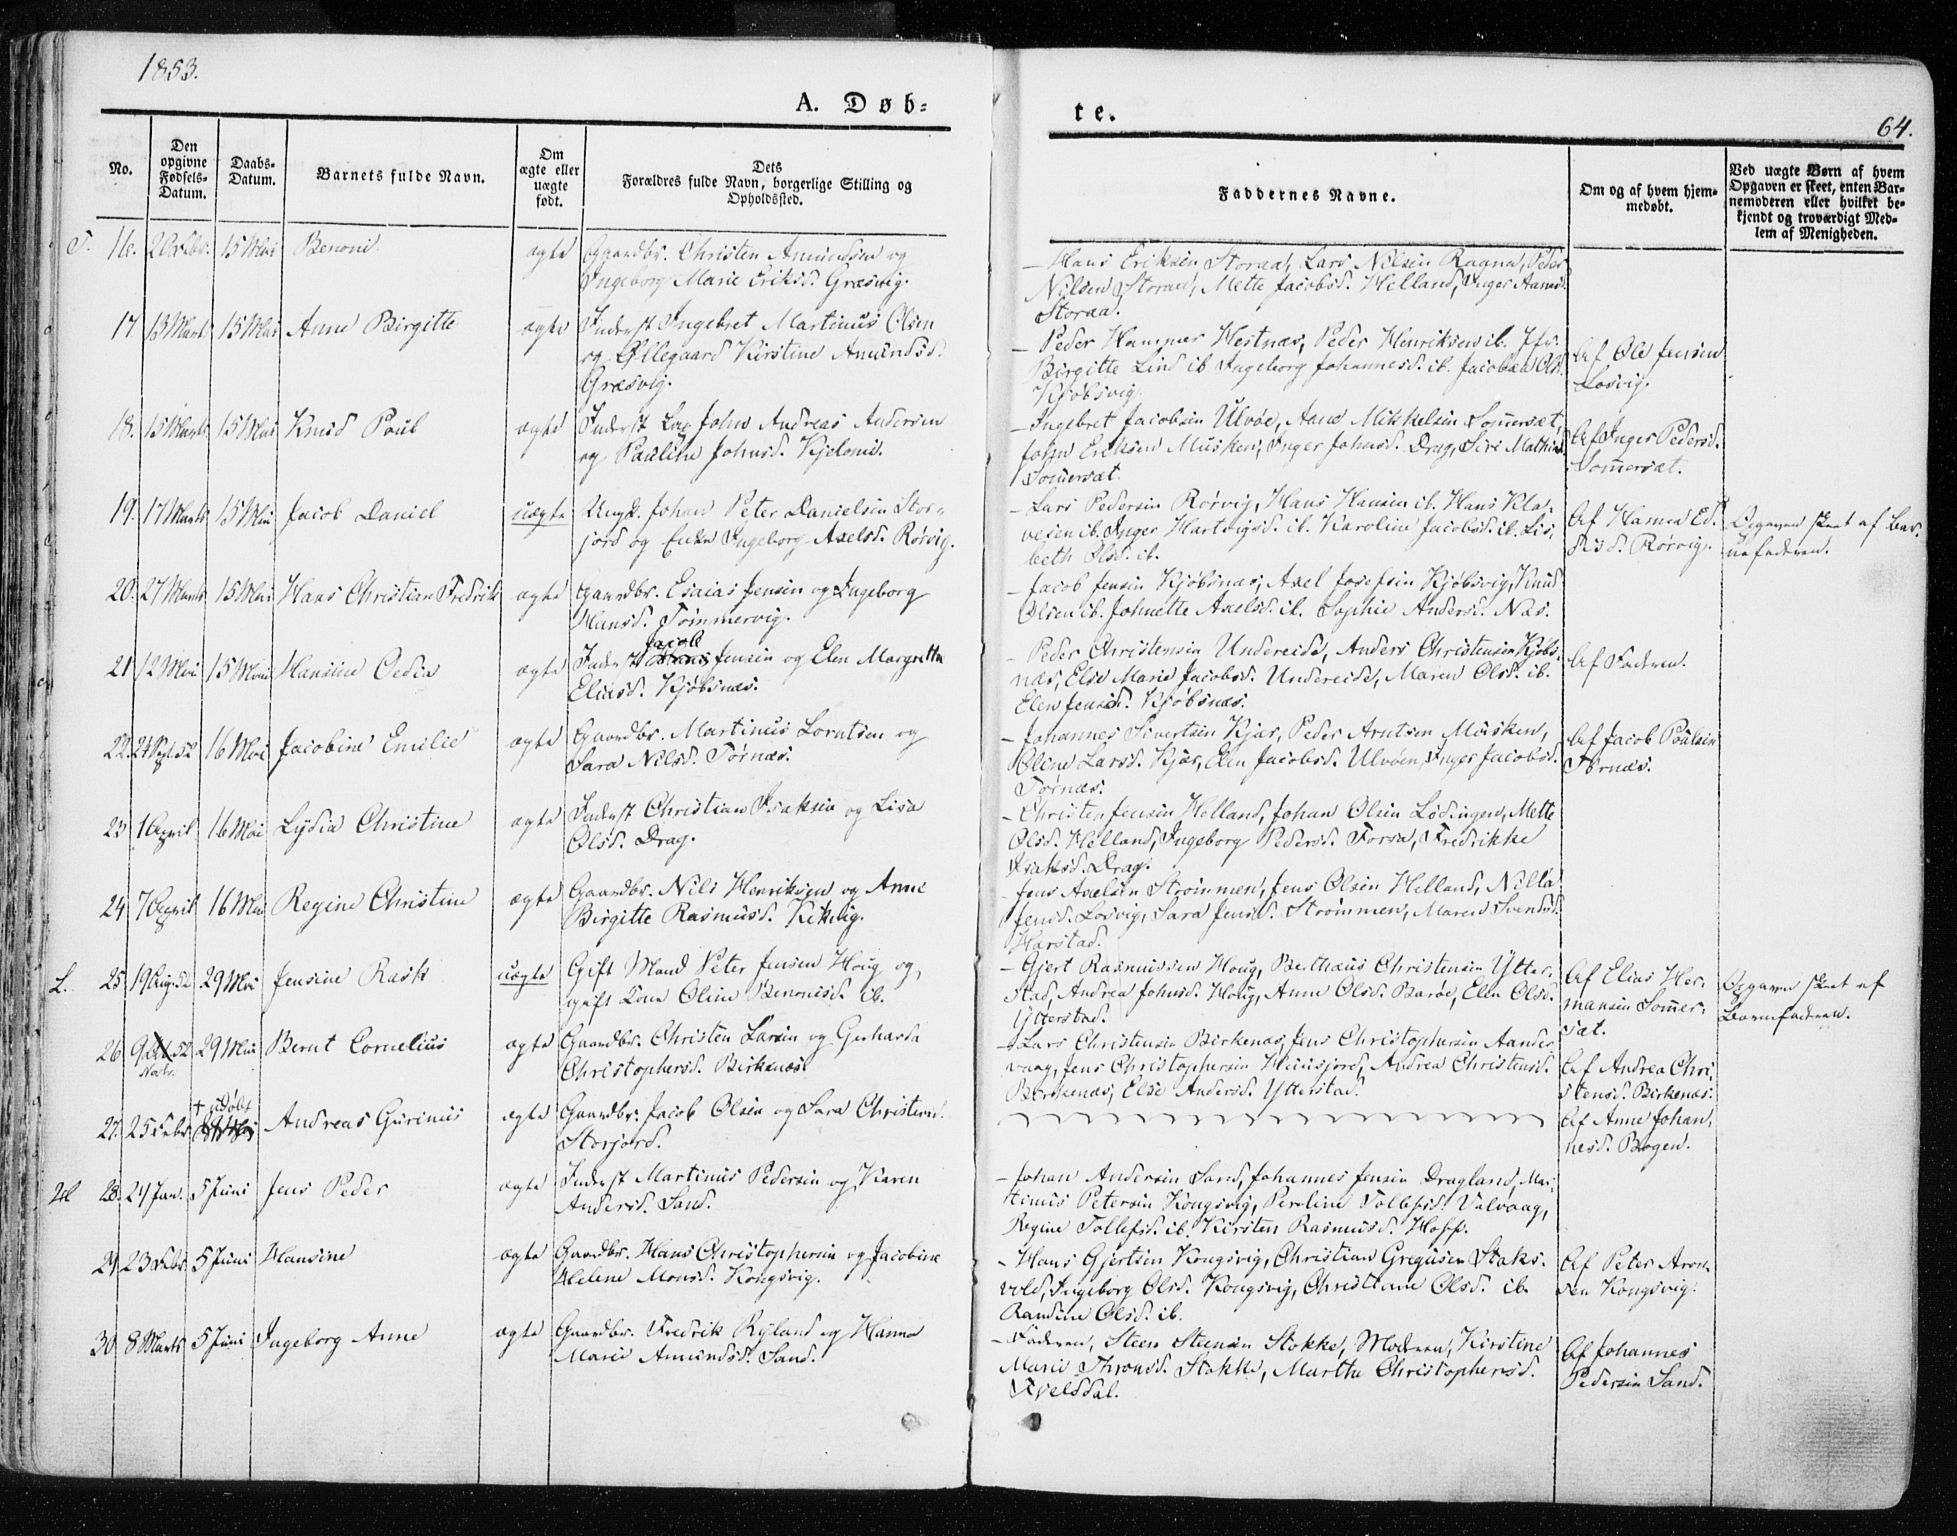 1853.
A. Døb-
te.
64.
No.
Den opgivne Fødsels-Datum.
Daabs-Datum.
Barnets fulde Navn.
Om ægte eller uægte født.
Dets Forældres fulde Navn, borgerlige Stilling og Opholdssted.
Faddernes Navne.
Om og af hvem hjemmedøbt.
Ved uægte Børn af hvem Opgaven er skeet, enten Barnemoderen eller hvilket bekjendt og troværdigt Medlem af Menigheden.
16. 15 Mai Benoni ægte Gaardbr. Christen Amundsen og
Ingeborg Marie Eriksd. Græsvig.
– Hans Eriksen Storaa, Lars Nilsen Ragna, Peder
Nilsen Storaa, Mette Jacobsd. Helland, Inger
Storaa.
17. 13 Marts 15 Mai Anne Birgitte ægte Inderst Ingebret Martinus Olsen
og Øllegaard Kirstine Amundsd.
Græsvig.
– Peder Hammer Hestnæs, Peder Henriksen ib. Jfr.
Birgitte Lind ib. Ingeborg Johannesd. ib. Jacobæa Olsd.
Kjøbsvig.
Af Ole Jensen
Losvig.
18. 15 Marts 15 Mai Knud Poul ægte Inderst Lap John Andreas Andersen
og Pauline Johnsd. Kjelomi.
– Ingebret Jacobsen Ulvøe, Mikkelsen Somersæt,
John Eriksen Musken, Inger Johnsd. Drag, Siri
Somersæt.
Af Inger Pedersd.
Somersæt.
19. 17 Marts 15 Mai Jacob Daniel uægte Ungk. Johan Peter Danielsen Stor-
jord og Enke Ingeborg Axelsd. Rørvig.
– Lars Pedersen Rørvig, Hans Hansen ib. Hans Kla-
vesen ib. Inger Hartvigsd. ib. Karoline Jacobsd. ib. Lis-
beth Olsd. ib.
Af Hanna Ed.
Rørvig.
Opgaven skeet af Bar-
nefaderen.
20. 27 Marts 15 Mai Hans Christian Fredrik ægte Gaardbr. Esaias Jensen og Ingeborg
Hansd. Tømmervig.
– Jacob Jensen Kjøbsnæs, Axel Josefsen Kjøbsvig, Knud
Olsen ib. Johnette Axelsd. ib. Sophie Andersd. Næs.
21. 12 Mai 15 Mai Hansine Oedia ægte Inderst Jacob Jensen og Elen Margretha
Eliasd. Kjøbsnæs.
– Peder Christensen Undereide, Anders Christensen Kjøbs-
næs, Else Marie Jacobsd. Undereide, Maren Olsd. ib.
Elen Jensd. Kjøbsnæs.
Af Faderen.
22. 24 Sept. 52 16 Mai Jacobine Emilie ægte Gaardbr. Martinus Lorntsen og
Sara Nilsd. Tørnæs.
– Johannes Sivertsen Kjær, Peder Arntsen Musken,
Oline Larsd. Kjær, Elen Jacobsd. Ulvøen, Inger Jacobsd.
Tørnæs.
Af Jacob Poulsen
Tørnæs.
23. 1 April 16 Mai Lydia Christine ægte Inderst Christian Isaksen og Lisa
Olsd. Drag.
– Christen Jensen Helland, Johan Olsen Lødingen, Mette
Olsd. Helland, Ingeborg Pedersd. Forsa, Fredrikke
Isaksd. Drag.
24. 7 April 16 Mai Regine Christine ægte Gaardbr. Nils Henriksen og Anne
Birgitte Rasmusd.
– Jens Axelsen Strømmen, Jens Olsen Helland, Nilla
Jensd. Losvig, Sara Jensd. Strømmen, Maren Svendsd.
Harstad.
L. 25. 19 Aug. 52 29 Mai Jensine Rask uægte Gift Mand Peter Jensen Houg og
gift Kone Oline Benonisd. ib.
– Gjert Rasmussen Houg, Berthæus Christensen Ytter-
stad, Andrea Johnsd. Houg, Anne Olsd. Barøe, Elen Olsd.
Ytterstad.
Af Elias Her-
mansen Somer-
sæt.
Opgaven skeet af
Barnefaderen.
26. 9 Novbr. 52 29 Mai Bernt Cornelius ægte Gaardbr. Christen Larsen og Gerharda
Christophersd. Birkenæs.
– Lars Christensen Birkenæs, Jens Christophersen Aander-
vaag, Jens Christophersen Heinsjord, Andrea Christensd.
Birkenæs, Else Andersd. Ytterstad.
Af Andrea Chri-
stensd. Birkenæs.
27. 25 Febr. + udøbt Andreas Gurinius ægte Gaardbr. Jacob Olsen og Sara Christensd.
Storjord.
Af Anne Johan-
nesd. Bogen.
28. 24 Jan. 5 Juni Jens Peder ægte Inderst Martinus Pedersen og Karen
Andersd. Sand.
– Johan Andersen Sand, Johannes Jensen Dragland, Mar-
tinus Petersen Kongsvig, Perline Tollefsd. Valvaag,
Regine Tollefsd. ib. Kirsten Rasmusd. Hoff.
29. 23 Febr. 5 Juni Hansine ægte Gaardbr. Hans Christophersen og Jacobine
Helene Monsd. Kongsvig.
– Hans Gjertsen Kongsvig, Christian Gregusen Staks-
vold, Ingeborg Olsd. Kongsvig, Christiane Olsd. ib.
Randine Olsd. ib.
Af Peter Aron-
sen Kongsvig.
30. 8 Marts 5 Juni Ingeborg Anne ægte Gaardbr. Fredrik Ryland og Hanna
Marie Amundsd. Sand.
– Faderen, Steen Steensen Stokke, Moderen, Kirstine
Marie Thronsd. Stokke, Marthe Christophersd.
Tjelsdal.
Af Johannes
Pedersen Sand.